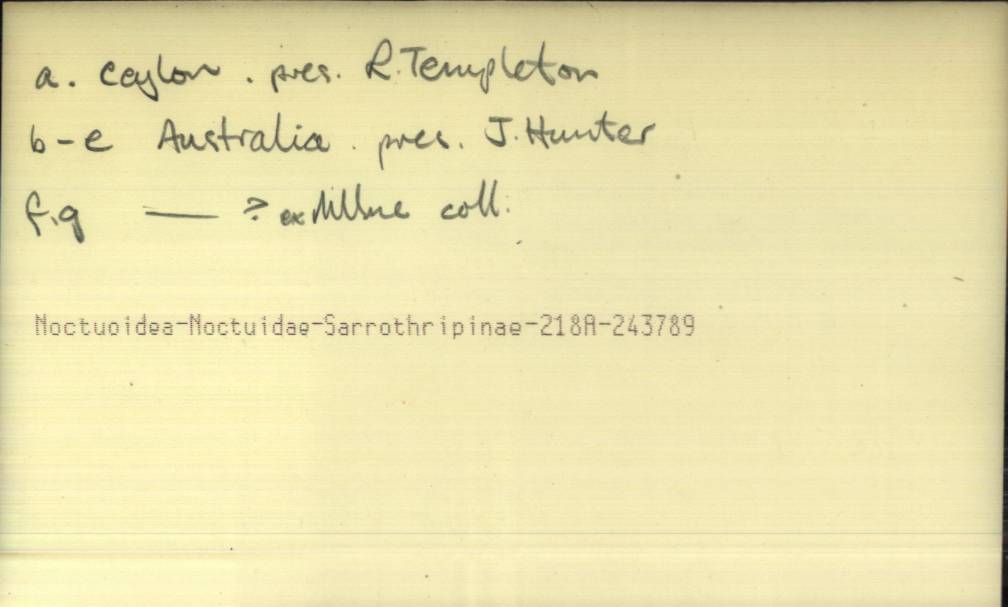 a. Ceylon. pres. R. Templeton
b-e Australia. pres. J. Hunter
f,g — ? ex coll.
Noctuoidea-Noctuidae-Sarrothripinae-218A-243789